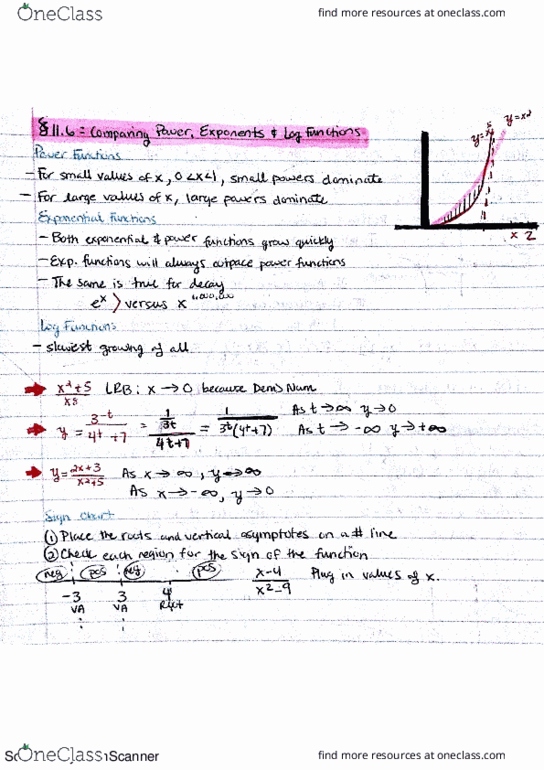 OneClass
find more resources at oneclass.com
§ 11.6 = Comparing Power, Exponents & Log Functions
y=x²
Power Functions
- For small values of x, 0<x<1, small powers dominate
- For large values of x, large powers dominate
x 2
Exponential Functions
- Both exponential & power functions grow quickly
- Exp. functions will always outpace power functions
- The same is true for decay
eˣ > versus x
Log Functions
- slowest growing of all
LRB: x → 0 because Den > Num
y = 3^-t / 4^t + 7 = 1/3^t / 4^t + 7 = 1 / 3^t (4^t + 7) As t → ∞ y → 0
As t → -∞ y → +∞
y = 2x+3 / x²+5 As x → ∞, y → ∞
As x → -∞, y → 0
Sign Chart
① Place the roots and vertical asymptotes on a # line
② Check each region for the sign of the function
neg pos neg pos x-4 / x²-9 Plug in values of x.
-3 3 4
VA VA Root
OneClass
Scanner
find more resources at oneclass.com